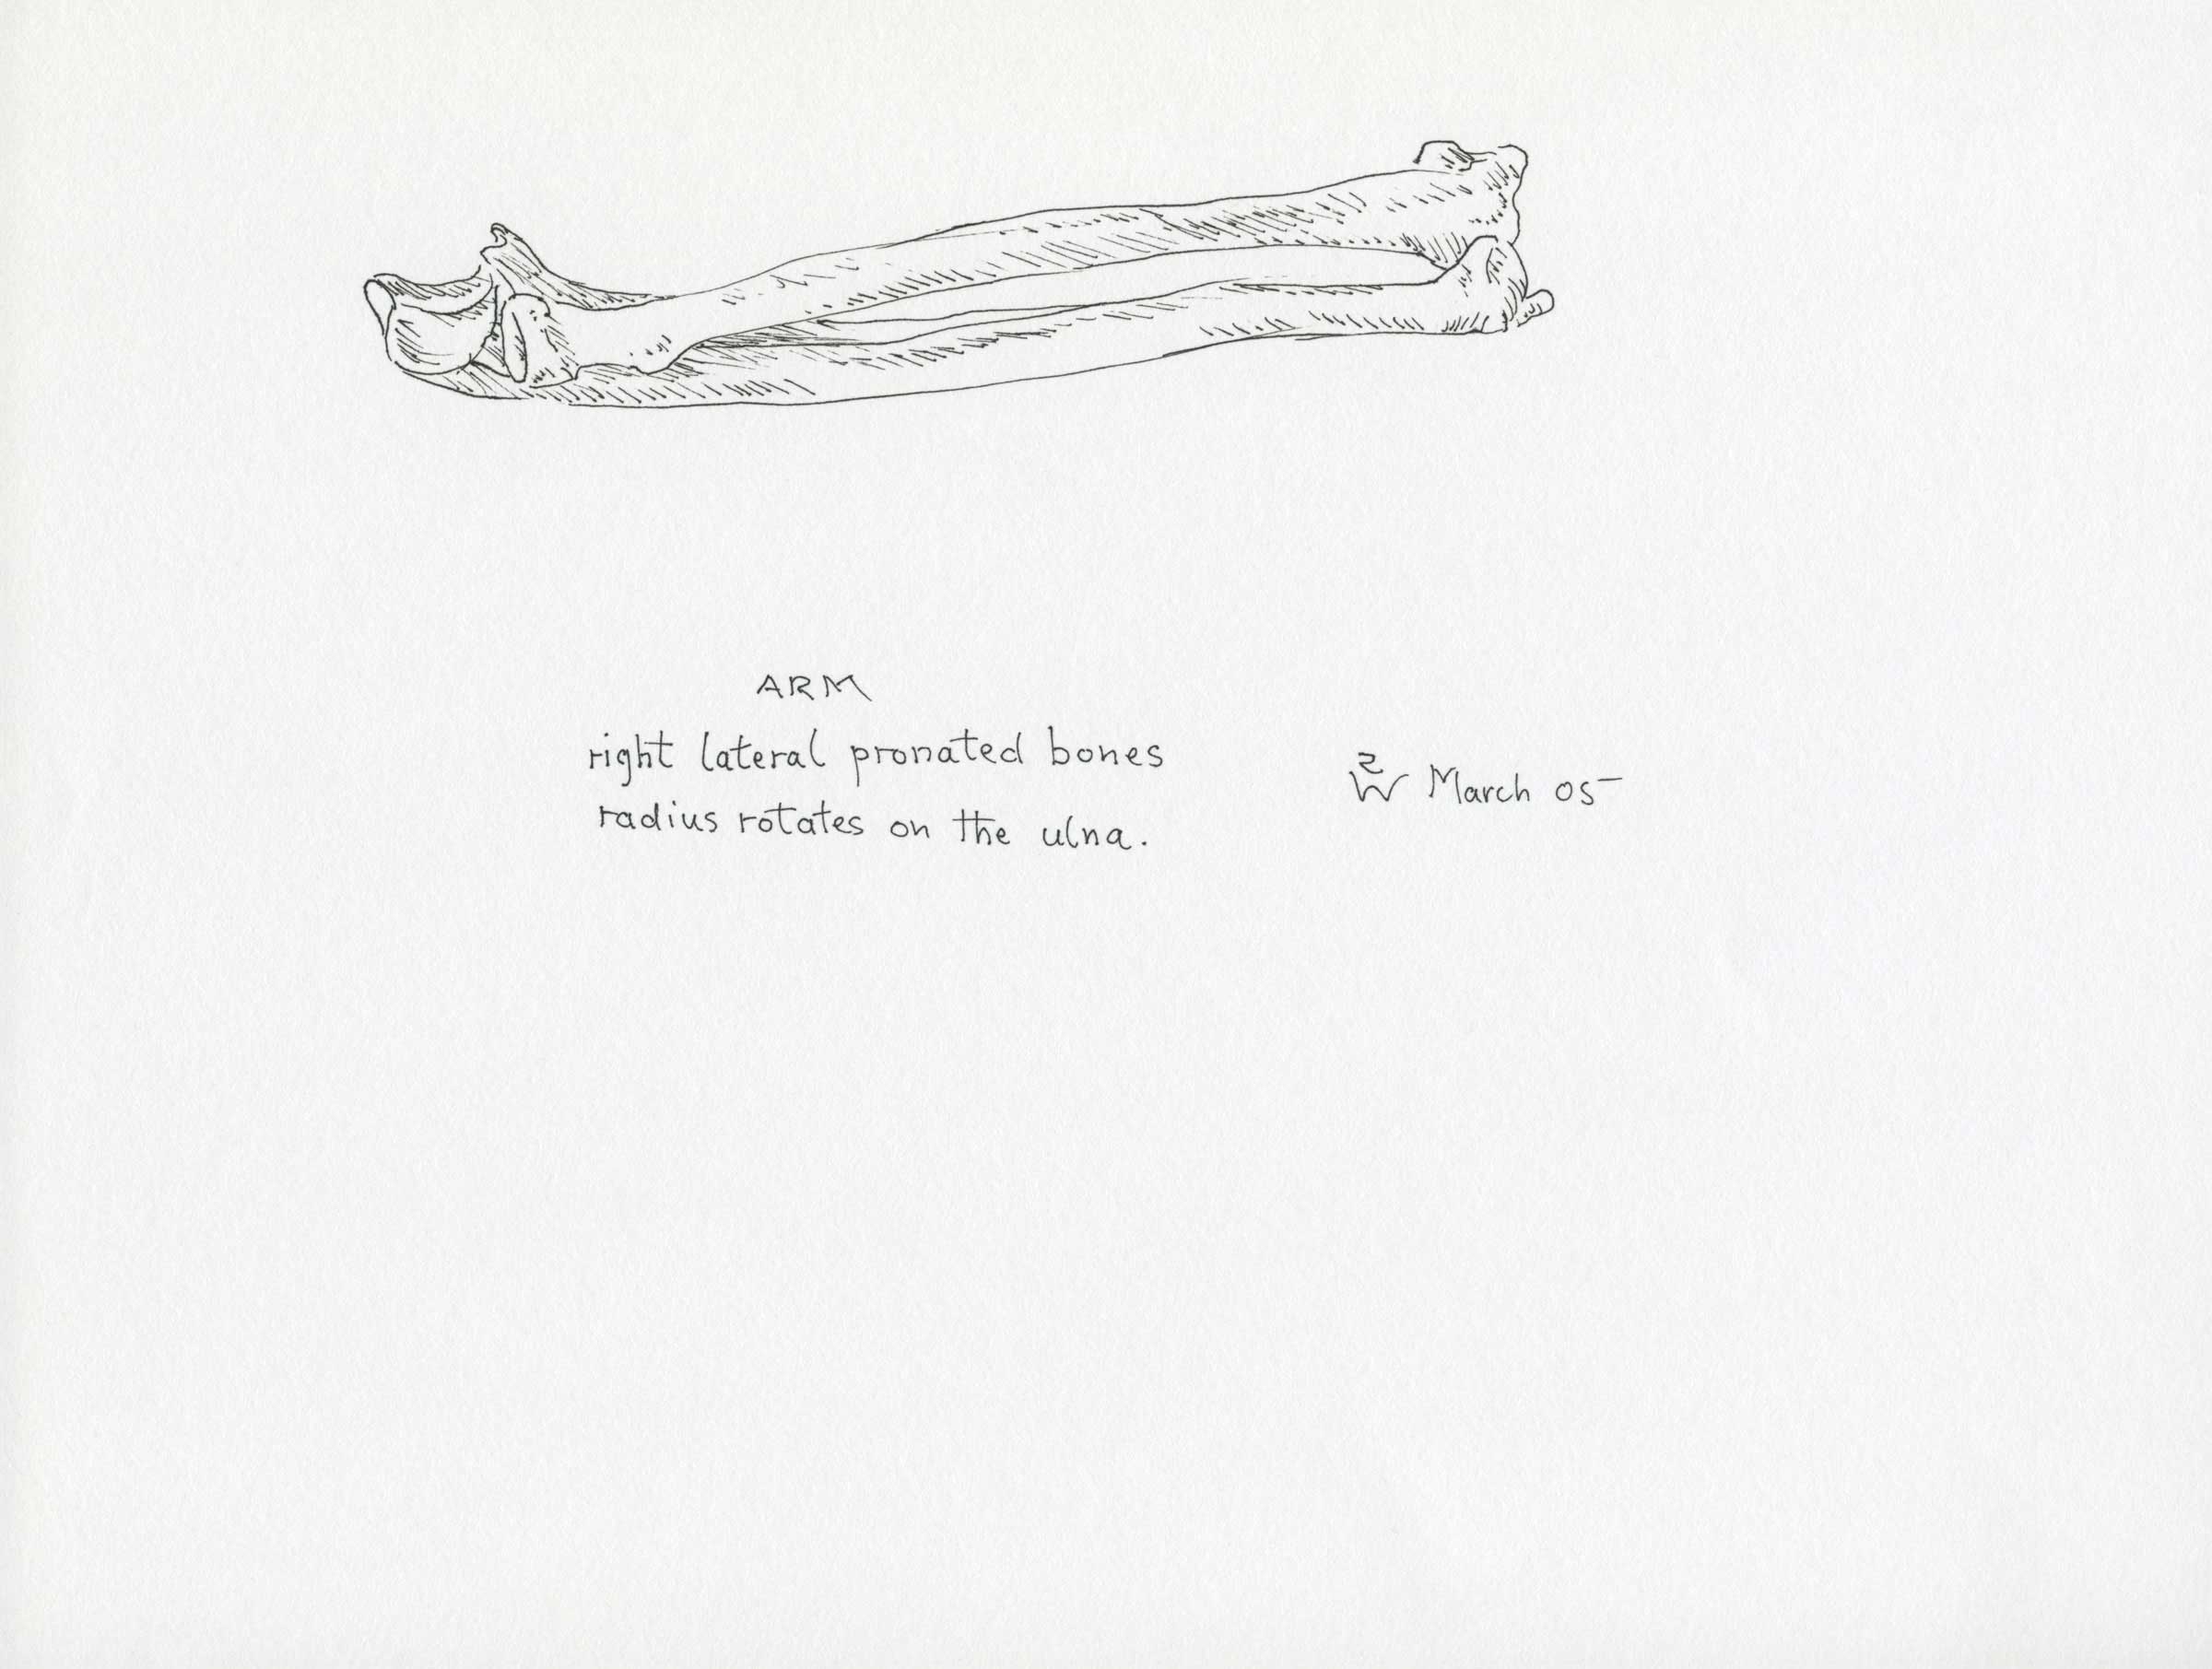 ARM
right lateral pronated bones
radius rotates on the ulna.
March 05